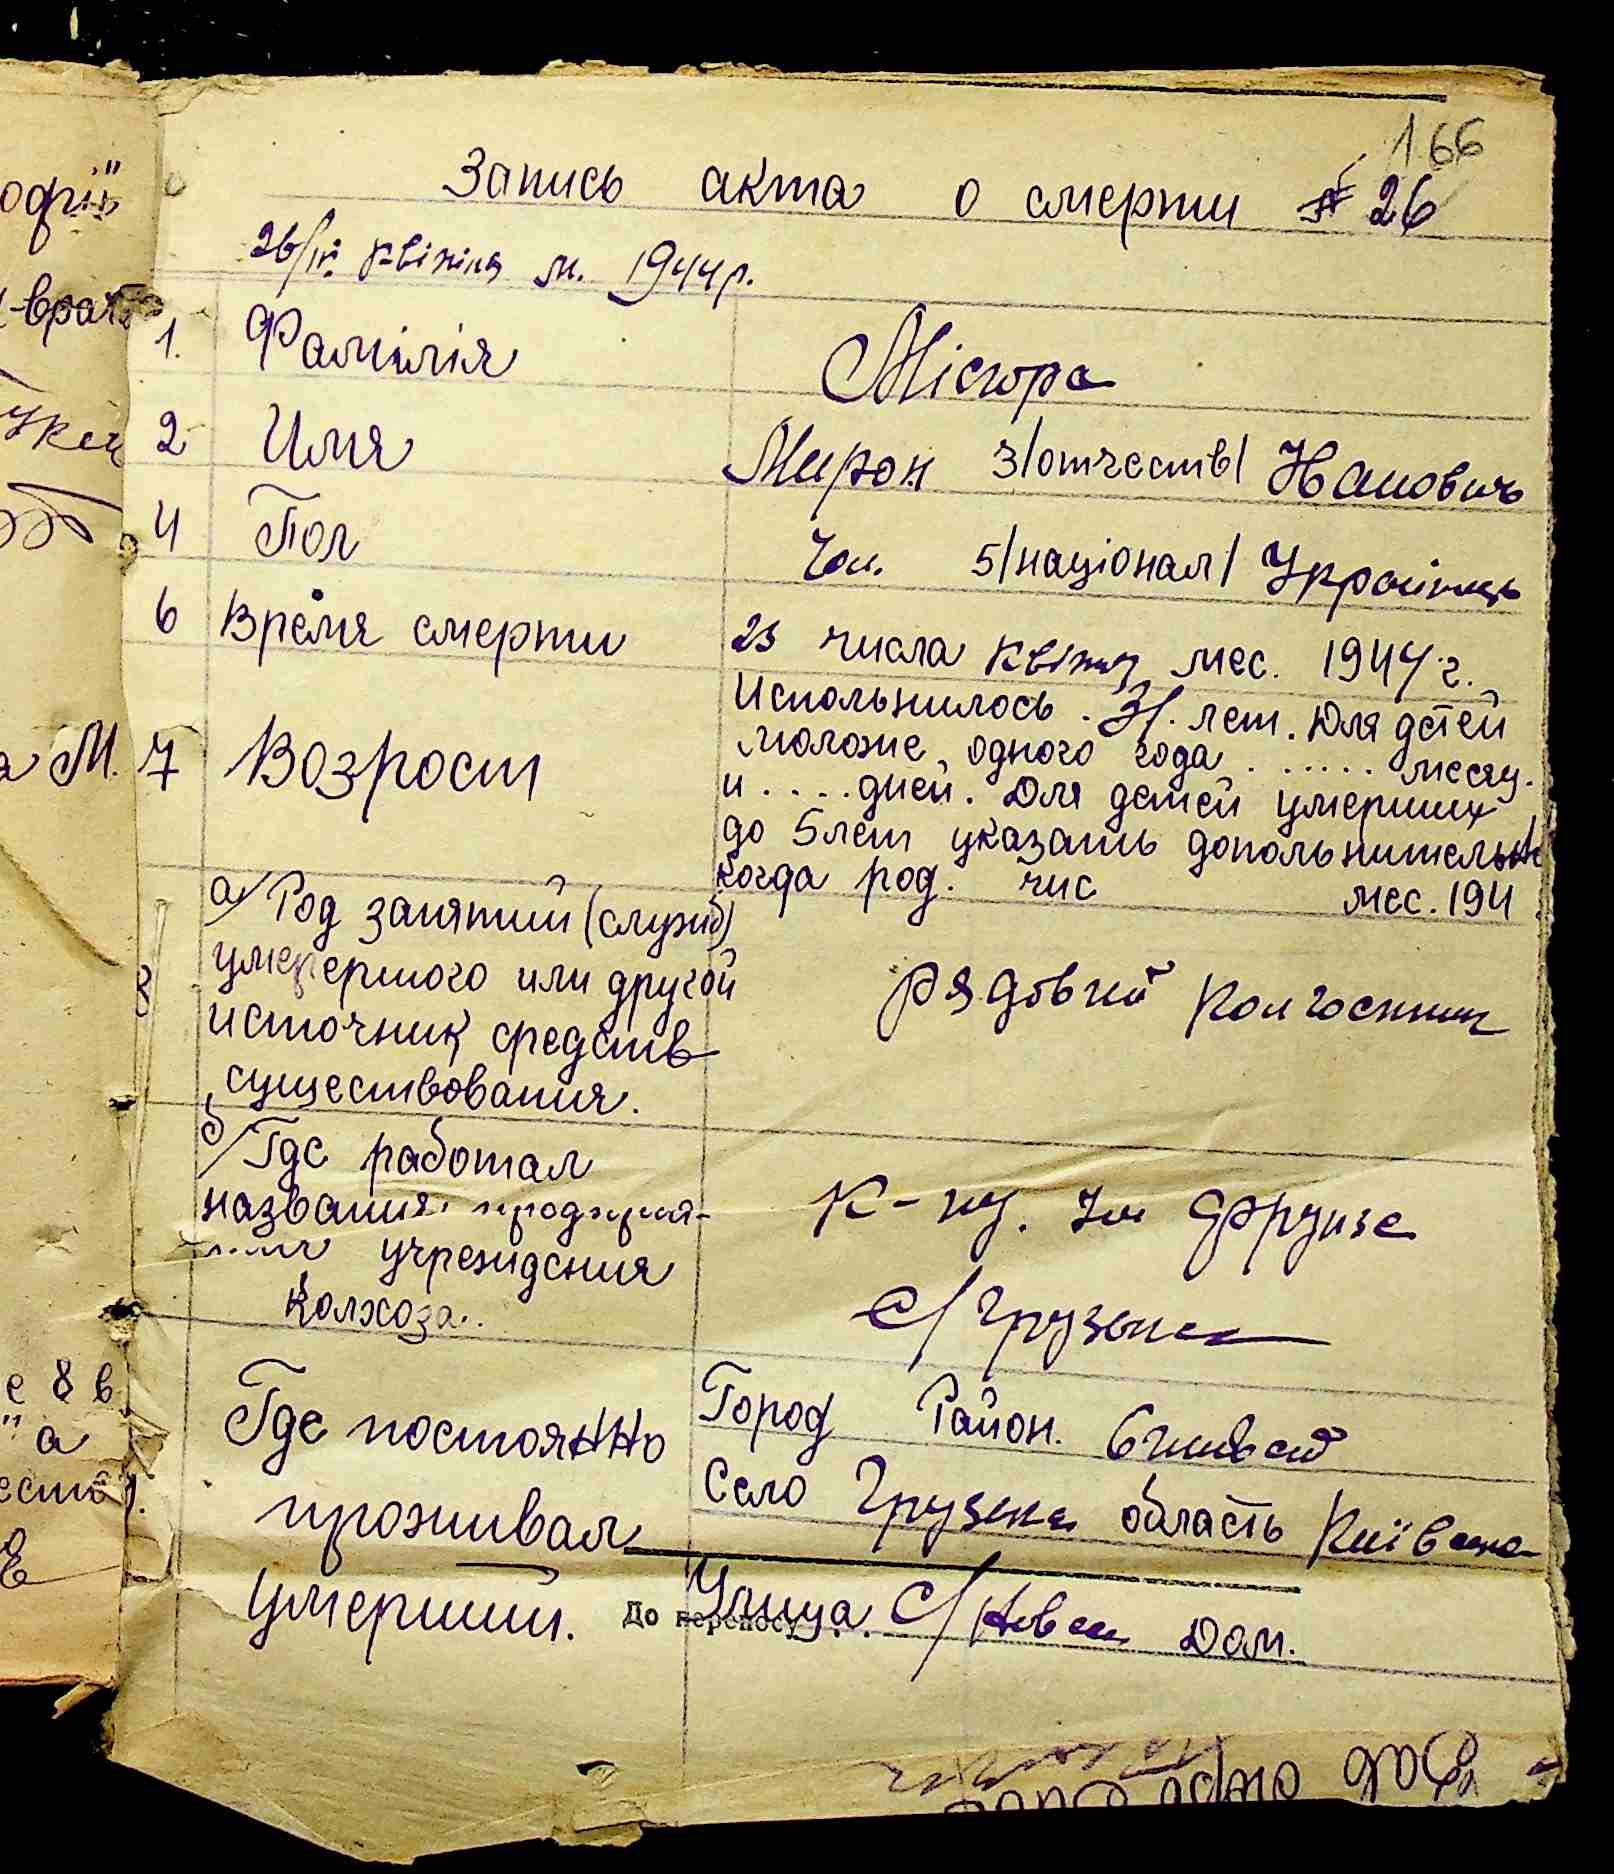 166
Запись акта о смерти № 26
26/IV квітня м. 1944 р.
1. Фамілія Місюра
2 Имя Мирон 3/отчеств/ Іванович
4 Пол Чол. 5/націонал/ Українець
6 Время смерти 23 числа квітня мес. 1944 г.
7 Возрост
Испольнилось . 31. лет. Для детей
моложе одного года . . . . . . месяц.
и . . . . дней. Для детей умерших
до 5 лет указать допольнительн
когда род. чис мес. 194
8 а/ Род занятий (служб)
умерершого или другой
источник средств
существования.
рядовий колгоспник
б/ Где работал
названия
учреждения
колхоза..
К-п ім Фрунзе
с/ Грузьке
Где постоянно
проживал
умерший.
Город Район.
Село Грузьке область Київська
Улица С/ Дом.
До переносу . .
офії"
врач
а М.
е 8 в
" а